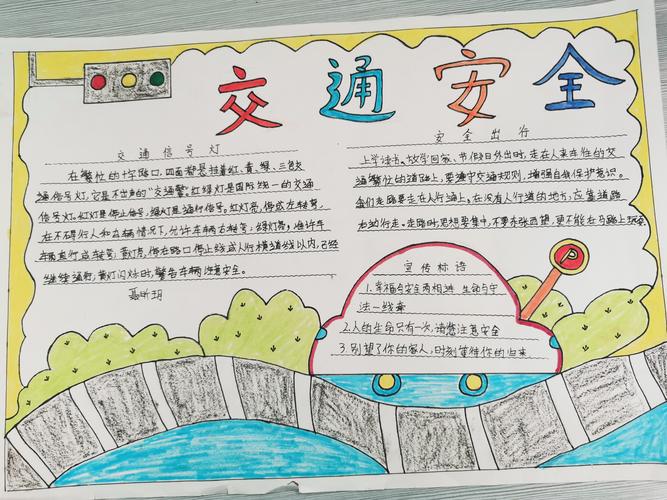 交通安全
交通信号灯
在繁忙的十字路口,四面都悬挂着红、黄、绿、三色交
通信号灯,它是不出声的“交通警”红绿灯是国际统一的交通
信号灯。红灯是停止信号,绿灯是通行信号。红灯亮,停或左转弯,
在不碍行人和车辆情况下,允许车辆右转弯;绿灯亮,准许车
车辆直行或转弯;黄灯亮,停在路口停止线或人行横道线以内,已经
继续通行;黄灯闪烁时,警告车辆注意安全。
聂昕玥
安全出行
上学读书、放学回家、节假日外出时,走在人来车往的交
通繁忙的道路上,要遵守交通规则,增强自我保护意识。
我们走路要走在人行道上。在没有人行道的地方,应靠道路
右边行走。走路时思想要集中,不要东张西望,更不能在马路上玩耍
宣传标语
1.幸福与安全两相连 生命与守
法一线牵
2.人的生命只有一次,请您注意安全
3.别忘了你的家人,时刻等待你的归来